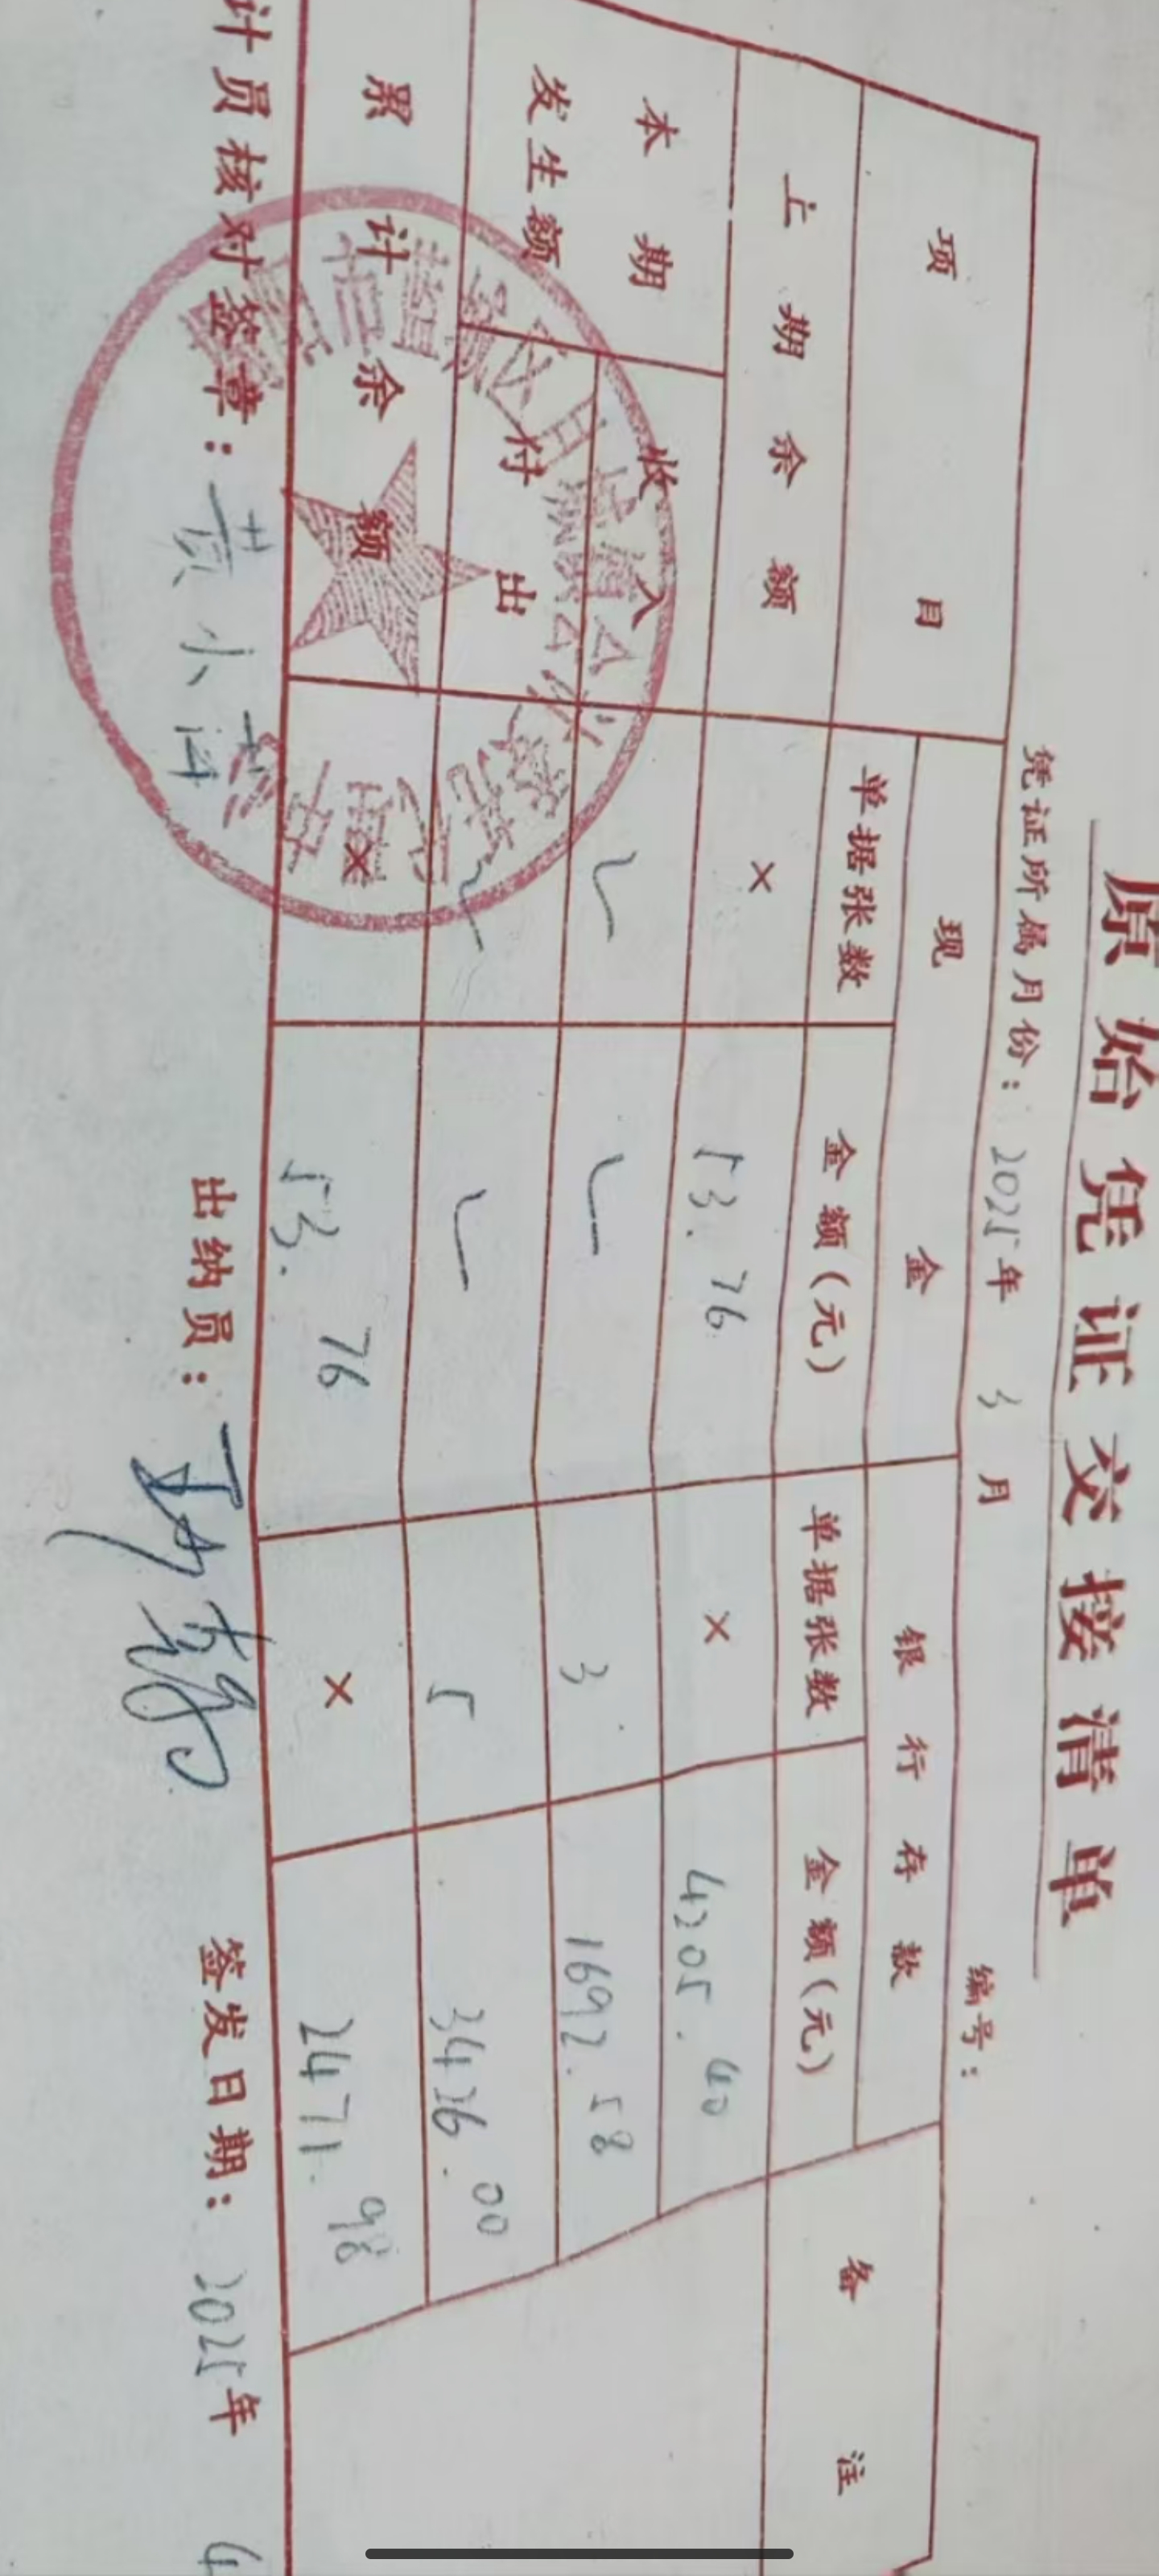 原始凭证交接清单
凭证所属月份：2025年 3月 编号：
项目 现金 银行存款 备注
单据张数 金额（元） 单据张数 金额（元）
上期余额 × 53.76 × 4205.40
本期发生额 收入 3 1692.58
付出 5 3426.00
累计余额 × 53.76 × 2471.98
计员核对签章：黄小 出纳员： 签发日期：2025年 4